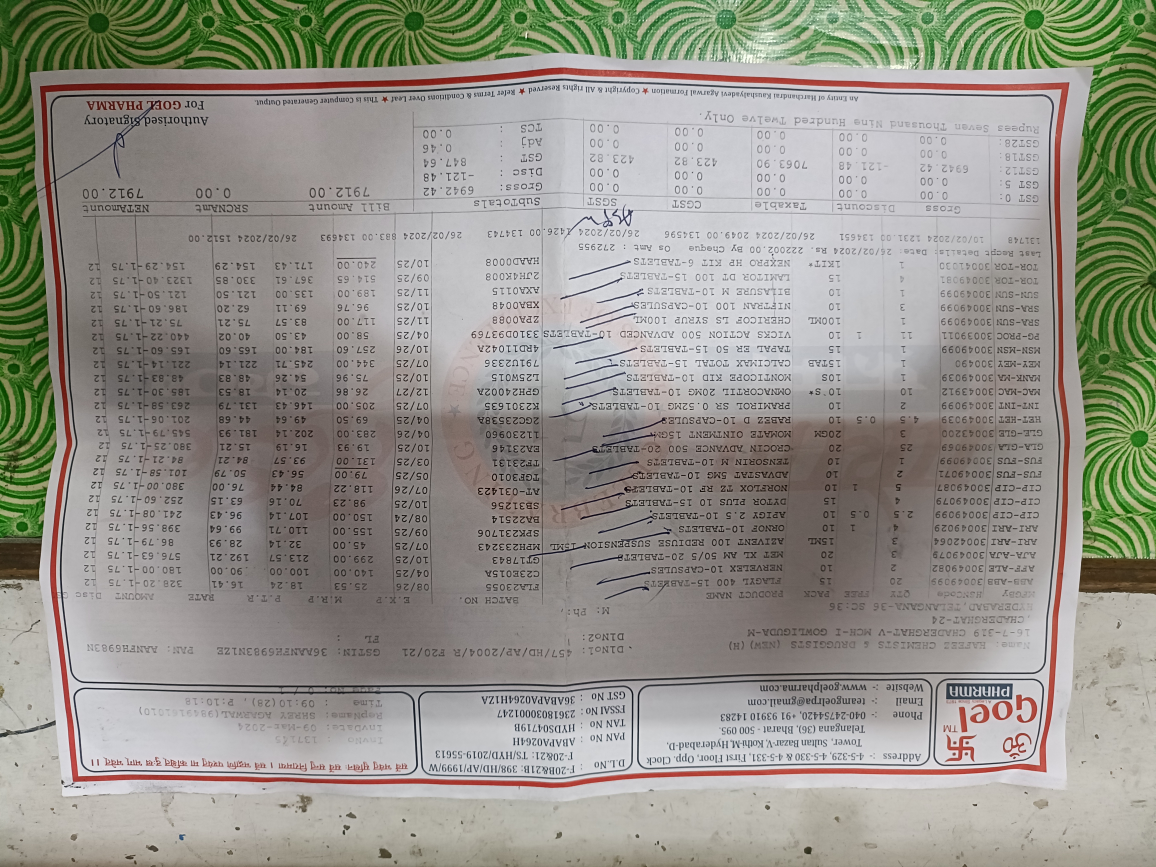 सर्वे भवन्तु सुखिनः सर्वे सन्तु निरामयाः । सर्वे भद्राणि पश्यन्तु मा कश्चित् दुःख भाग् भवेत् ।।
ॐ 卐 TM
Goel
PHARMA
Address :- 4-5-329, 4-5-330 & 4-5-331, First Floor, Opp. Clock
Tower, Sultan Bazar V, Kothi M, Hyderabad-D,
Telangana (36), Bharat - 500 095.
Phone :- 040-24754420, +91 93910 14283
Email :- teamgoelpharma@gmail.com
Website :- www.goelpharma.com
D.L.No : F-20B&21B: 398/HD/AP/1999/W
F-20&21F: TS/HYD/2019-55613
PAN No : ABAPA0264H
TAN No : HYDS04719B
FSSAI No : 23618030001247
GST No : 36ABAPA0264H1ZA
InvNo :
InvDate: 09-Mar-2024
RepName: SHREE AGARWAL
Time : 09:10(28), P:10:18
Page No: 0 / 1
Name: HAFEES CHEMISTS & DRUGGISTS (NEW) (H)
16-7-319 CHADERGHAT-V MCH-I GOWLIGUDA-M
,CHADERGHAT-24
HYDERABAD,TELANGANA-36 SC:36
D1No1: 457/HD/AP/2004/R F20/21
D1No2:
M: Ph:
GSTIN: 36AANFH6983N1ZE PAN: AANFH6983N
FL :
MfgBy HSNCode QTY FREE PACK PRODUCT NAME BATCH NO. E.X.P M.R.P P.T.R. RATE AMOUNT Disc
ABB-ABB 30049099 20 15 FLAGYL 400 15-TABLETS FLA23055 08/26 25.53 18.24 16.41 328.20-1.75 12
AFF-ALE 30049082 2 10 NERVELEX 10-CAPSULES C2E3015A 04/25 140.00 100.00 90.00 180.00-1.75 12
AJA-AJA 30049079 3 20 MET XL AM 50/5 20-TABLETS GT178413 10/25 299.00 213.57 192.21 576.63-1.75 12
ART-ARI 30042064 3 15ML AZIVENT 100 REDIUSE SUSPENSION 15ML MPH233243 07/25 45.00 32.14 28.93 86.79-1.75 12
ART-ARI 30049029 4 1 10 ORNOF 10-TABLETS SPK231706 09/25 155.00 110.71 99.64 398.56-1.75 12
CIP-CIP 30049099 2.5 0.5 10 APIGY 2.5 10-TABLETS BA22514 08/24 150.00 107.14 96.43 241.08-1.75 12
CIP-CIP 30049079 4 15 DYTOR PLUS 10 15-TABLETS SB31256 10/25 98.23 70.16 63.15 252.60-1.75 12
CIP-CIP 30049087 5 1 10 NORFLOX TZ RF 10-TABLETS AT-031423 07/26 118.22 84.44 76.00 380.00-1.75 12
FUS-FUS 30049071 2 10 ADVASTAT 5MG 10-TABLETS TGR3010 05/25 79.00 56.43 50.79 101.58-1.75 12
FUS-FUS 30049069 1 10 TENSORIN M 10-TABLETS TP23121 03/25 131.00 93.57 84.21 84.21-1.75 12
GLA-GLA 25 20 CROCIN ADVANCE 500 20-TABLETS EA23146 10/25 19.93 16.19 15.21 380.25-1.75 12
GLE-GLE 30043200 3 20GM MOMATE OINTMENT 15GM 11230960 04/26 283.00 202.14 181.93 545.79-1.75 12
HET-HET 30049039 4.5 0.5 10 RABEZ D 10-CAPSULES 2GC2353AB 04/26 69.50 49.64 44.68 201.06-1.75 12
INT-INT 30049099 2 10 PRAMIROL SR 0.52MG 10-TABLETS K2301635 07/25 205.00 146.43 131.79 263.58-1.75 12
MAC-MAC 30043912 10 10'S* OMNACORTIL 20MG 10-TABLETS GPH24002A 12/27 26.86 20.14 18.53 185.30-1.75 12
MANK-MA 30049039 1 10S MONTICOPE KID 10-TABLETS L25W015 10/25 75.96 54.26 48.83 48.83-1.75 12
MEY-MEY 300490 1 15TAB CALCIMAX TOTAL 15-TABLETS 791U2336 07/25 344.00 245.71 221.14 221.14-1.75 12
MSN-MSN 30049099 1 15 TAPAL ER 50 15-TABLETS 4RD11042A 10/26 257.60 184.00 165.60 165.60-1.75 12
PG-PROC 30039011 11 1 10 VICKS ACTION 500 ADVANCED 10-TABLETS 3310D93769 04/25 58.00 43.50 40.02 440.22-1.75 12
SRA-SUN 30049099 1 100ML CHERICOF LS SYRUP 100ML ZPA0088 11/25 117.00 83.57 75.21 75.21-1.75 12
SRA-SUN 30049099 3 10 NIFTRAN 100 10-CAPSULES XBA0048 10/25 96.76 69.11 62.20 186.60-1.75 12
SUN-SUN 30049099 1 10 BILASURE M 10-TABLETS AXA0115 11/25 189.00 135.00 121.50 121.50-1.75 12
TOR-TOR 30049081 4 15 LAMITOR DT 100 15-TABLETS 2JH4K008 09/25 514.65 367.61 330.85 1323.40-1.75 12
TOR-TOR 30041030 1 1KIT* NEXPRO HP KIT 6-TABLETS HAAD0008 10/25 240.00 171.43 154.29 154.29-1.75 12
Last Recpt Details: 26/02/2024 Rs. 222002.00 By Cheque Os Amt : 275955
131748 10/02/2024 1231.00 134651 26/02/2024 2049.00 134596 26/02/2024 1426.00 134743 26/02/2024 883.00 134693 26/02/2024 1512.00
Gross Discount Taxable CGST SGST SubTotals Bill Amount SRCNAmt NETAmount
GST 0: 0.00 0.00 0.00 0.00 0.00 Gross: 6942.42 7912.00 0.00 7912.00
GST 5: 0.00 0.00 0.00 0.00 0.00 Disc : -121.48
GST12: 6942.42 -121.48 7063.90 423.82 423.82 GST : 847.64
GST18: 0.00 0.00 0.00 0.00 0.00 Adj : 0.46
GST28: 0.00 0.00 0.00 0.00 0.00 TCS : 0.00
Rupees Seven Thousand Nine Hundred Twelve Only.
For GOEL PHARMA
Authorised Signatory
An Entity of Harinandan Kaushalyadevi Agarwal Formation ★ Copyright & All rights Reserved ★ Refer Terms & Conditions Over Leaf ★ This is Computer Generated Output.